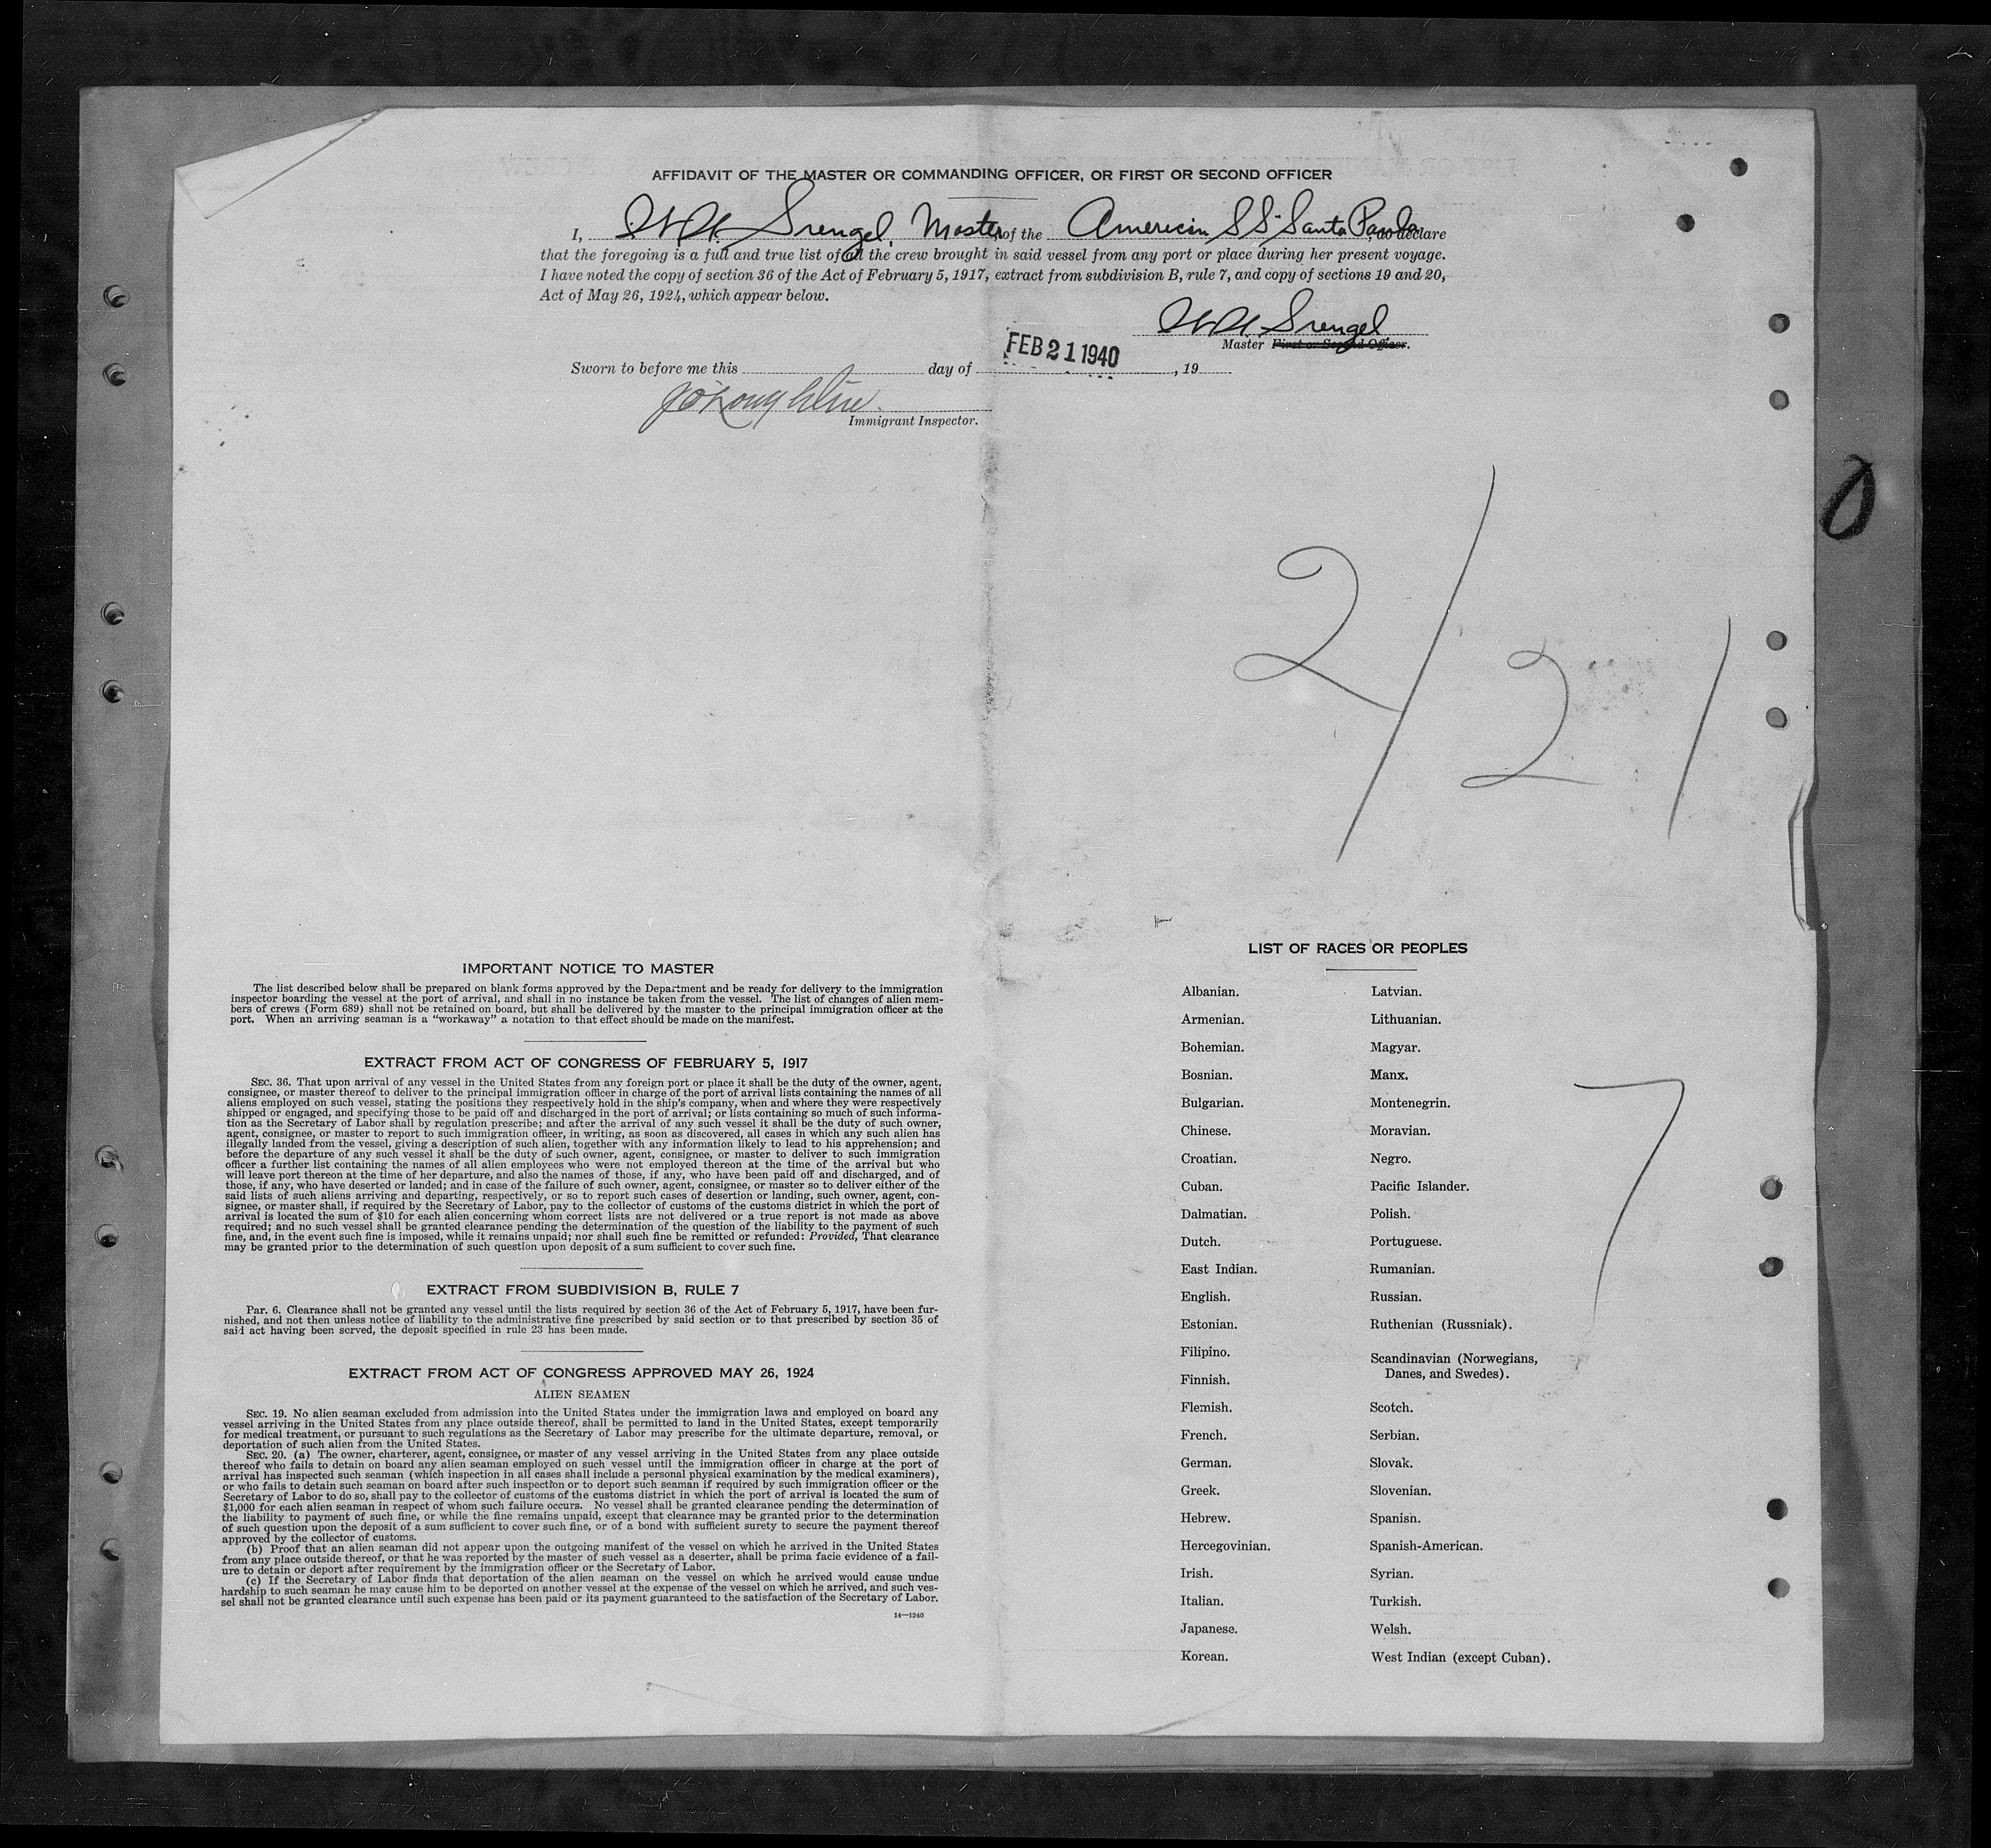 AFFIDAVIT OF THE MASTER OR COMMANDING OFFICER, OR FIRST OR SECOND OFFICER
I, Srengel, Master of the American SS "Santa Paula, do declare
that the foregoing is a full and true list of all the crew brought in said vessel from any port or place during her present voyage.
I have noted the copy of section 36 of the Act of February 5, 1917, extract from subdivision B, rule 7, and copy of sections 19 and 20,
Act of May 26, 1924, which appear below.
Srengel
Master First or Second Officer.
FEB 21 1940
Sworn to before me this day of , 19
Immigrant Inspector.
0
2/21
7
IMPORTANT NOTICE TO MASTER
The list described below shall be prepared on blank forms approved by the Department and be ready for delivery to the immigration
inspector boarding the vessel at the port of arrival, and shall in no instance be taken from the vessel. The list of changes of alien mem-
bers of crews (Form 689) shall not be retained on board, but shall be delivered by the master to the principal immigration officer at the
port. When an arriving seaman is a "workaway" a notation to that effect should be made on the manifest.
EXTRACT FROM ACT OF CONGRESS OF FEBRUARY 5, 1917
SEC. 36. That upon arrival of any vessel in the United States from any foreign port or place it shall be the duty of the owner, agent,
consignee, or master thereof to deliver to the principal immigration officer in charge of the port of arrival lists containing the names of all
aliens employed on such vessel, stating the positions they respectively hold in the ship's company, when and where they were respectively
shipped or engaged, and specifying those to be paid off and discharged in the port of arrival; or lists containing so much of such informa-
tion as the Secretary of Labor shall by regulation prescribe; and after the arrival of any such vessel it shall be the duty of such owner,
agent, consignee, or master to report to such immigration officer, in writing, as soon as discovered, all cases in which any such alien has
illegally landed from the vessel, giving a description of such alien, together with any information likely to lead to his apprehension; and
before the departure of any such vessel it shall be the duty of such owner, agent, consignee, or master to deliver to such immigration
officer a further list containing the names of all alien employees who were not employed thereon at the time of the arrival but who
will leave port thereon at the time of her departure, and also the names of those, if any, who have been paid off and discharged, and of
those, if any, who have deserted or landed; and in case of the failure of such owner, agent, consignee, or master so to deliver either of the
said lists of such aliens arriving and departing, respectively, or so to report such cases of desertion or landing, such owner, agent, con-
signee, or master shall, if required by the Secretary of Labor, pay to the collector of customs of the customs district in which the port of
arrival is located the sum of $10 for each alien concerning whom correct lists are not delivered or a true report is not made as above
required; and no such vessel shall be granted clearance pending the determination of the question of the liability to the payment of such
fine, and, in the event such fine is imposed, while it remains unpaid; nor shall such fine be remitted or refunded: Provided, That clearance
may be granted prior to the determination of such question upon deposit of a sum sufficient to cover such fine.
EXTRACT FROM SUBDIVISION B, RULE 7
Par. 6. Clearance shall not be granted any vessel until the lists required by section 36 of the Act of February 5, 1917, have been fur-
nished, and not then unless notice of liability to the administrative fine prescribed by said section or to that prescribed by section 35 of
said act having been served, the deposit specified in rule 23 has been made.
EXTRACT FROM ACT OF CONGRESS APPROVED MAY 26, 1924
ALIEN SEAMEN
SEC. 19. No alien seaman excluded from admission into the United States under the immigration laws and employed on board any
vessel arriving in the United States from any place outside thereof, shall be permitted to land in the United States, except temporarily
for medical treatment, or pursuant to such regulations as the Secretary of Labor may prescribe for the ultimate departure, removal, or
deportation of such alien from the United States.
SEC. 20. (a) The owner, charterer, agent, consignee, or master of any vessel arriving in the United States from any place outside
thereof who fails to detain on board any alien seaman employed on such vessel until the immigration officer in charge at the port of
arrival has inspected such seaman (which inspection in all cases shall include a personal physical examination by the medical examiners),
or who fails to detain such seaman on board after such inspection or to deport such seaman if required by such immigration officer or the
Secretary of Labor to do so, shall pay to the collector of customs of the customs district in which the port of arrival is located the sum of
$1,000 for each alien seaman in respect of whom such failure occurs. No vessel shall be granted clearance pending the determination of
the liability to payment of such fine, or while the fine remains unpaid, except that clearance may be granted prior to the determination
of such question upon the deposit of a sum sufficient to cover such fine, or of a bond with sufficient surety to secure the payment thereof
approved by the collector of customs.
(b) Proof that an alien seaman did not appear upon the outgoing manifest of the vessel on which he arrived in the United States
from any place outside thereof, or that he was reported by the master of such vessel as a deserter, shall be prima facie evidence of a fail-
ure to detain or deport after requirement by the immigration officer or the Secretary of Labor.
(c) If the Secretary of Labor finds that deportation of the alien seaman on the vessel on which he arrived would cause undue
hardship to such seaman he may cause him to be deported on another vessel at the expense of the vessel on which he arrived, and such ves-
sel shall not be granted clearance until such expense has been paid or its payment guaranteed to the satisfaction of the Secretary of Labor.
14—1240
LIST OF RACES OR PEOPLES
Albanian.
Armenian.
Bohemian.
Bosnian.
Bulgarian.
Chinese.
Croatian.
Cuban.
Dalmatian.
Dutch.
East Indian.
English.
Estonian.
Filipino.
Finnish.
Flemish.
French.
German.
Greek.
Hebrew.
Hercegovinian.
Irish.
Italian.
Japanese.
Korean.
Latvian.
Lithuanian.
Magyar.
Manx.
Montenegrin.
Moravian.
Negro.
Pacific Islander.
Polish.
Portuguese.
Rumanian.
Russian.
Ruthenian (Russniak).
Scandinavian (Norwegians,
Danes, and Swedes).
Scotch.
Serbian.
Slovak.
Slovenian.
Spanish.
Spanish-American.
Syrian.
Turkish.
Welsh.
West Indian (except Cuban).